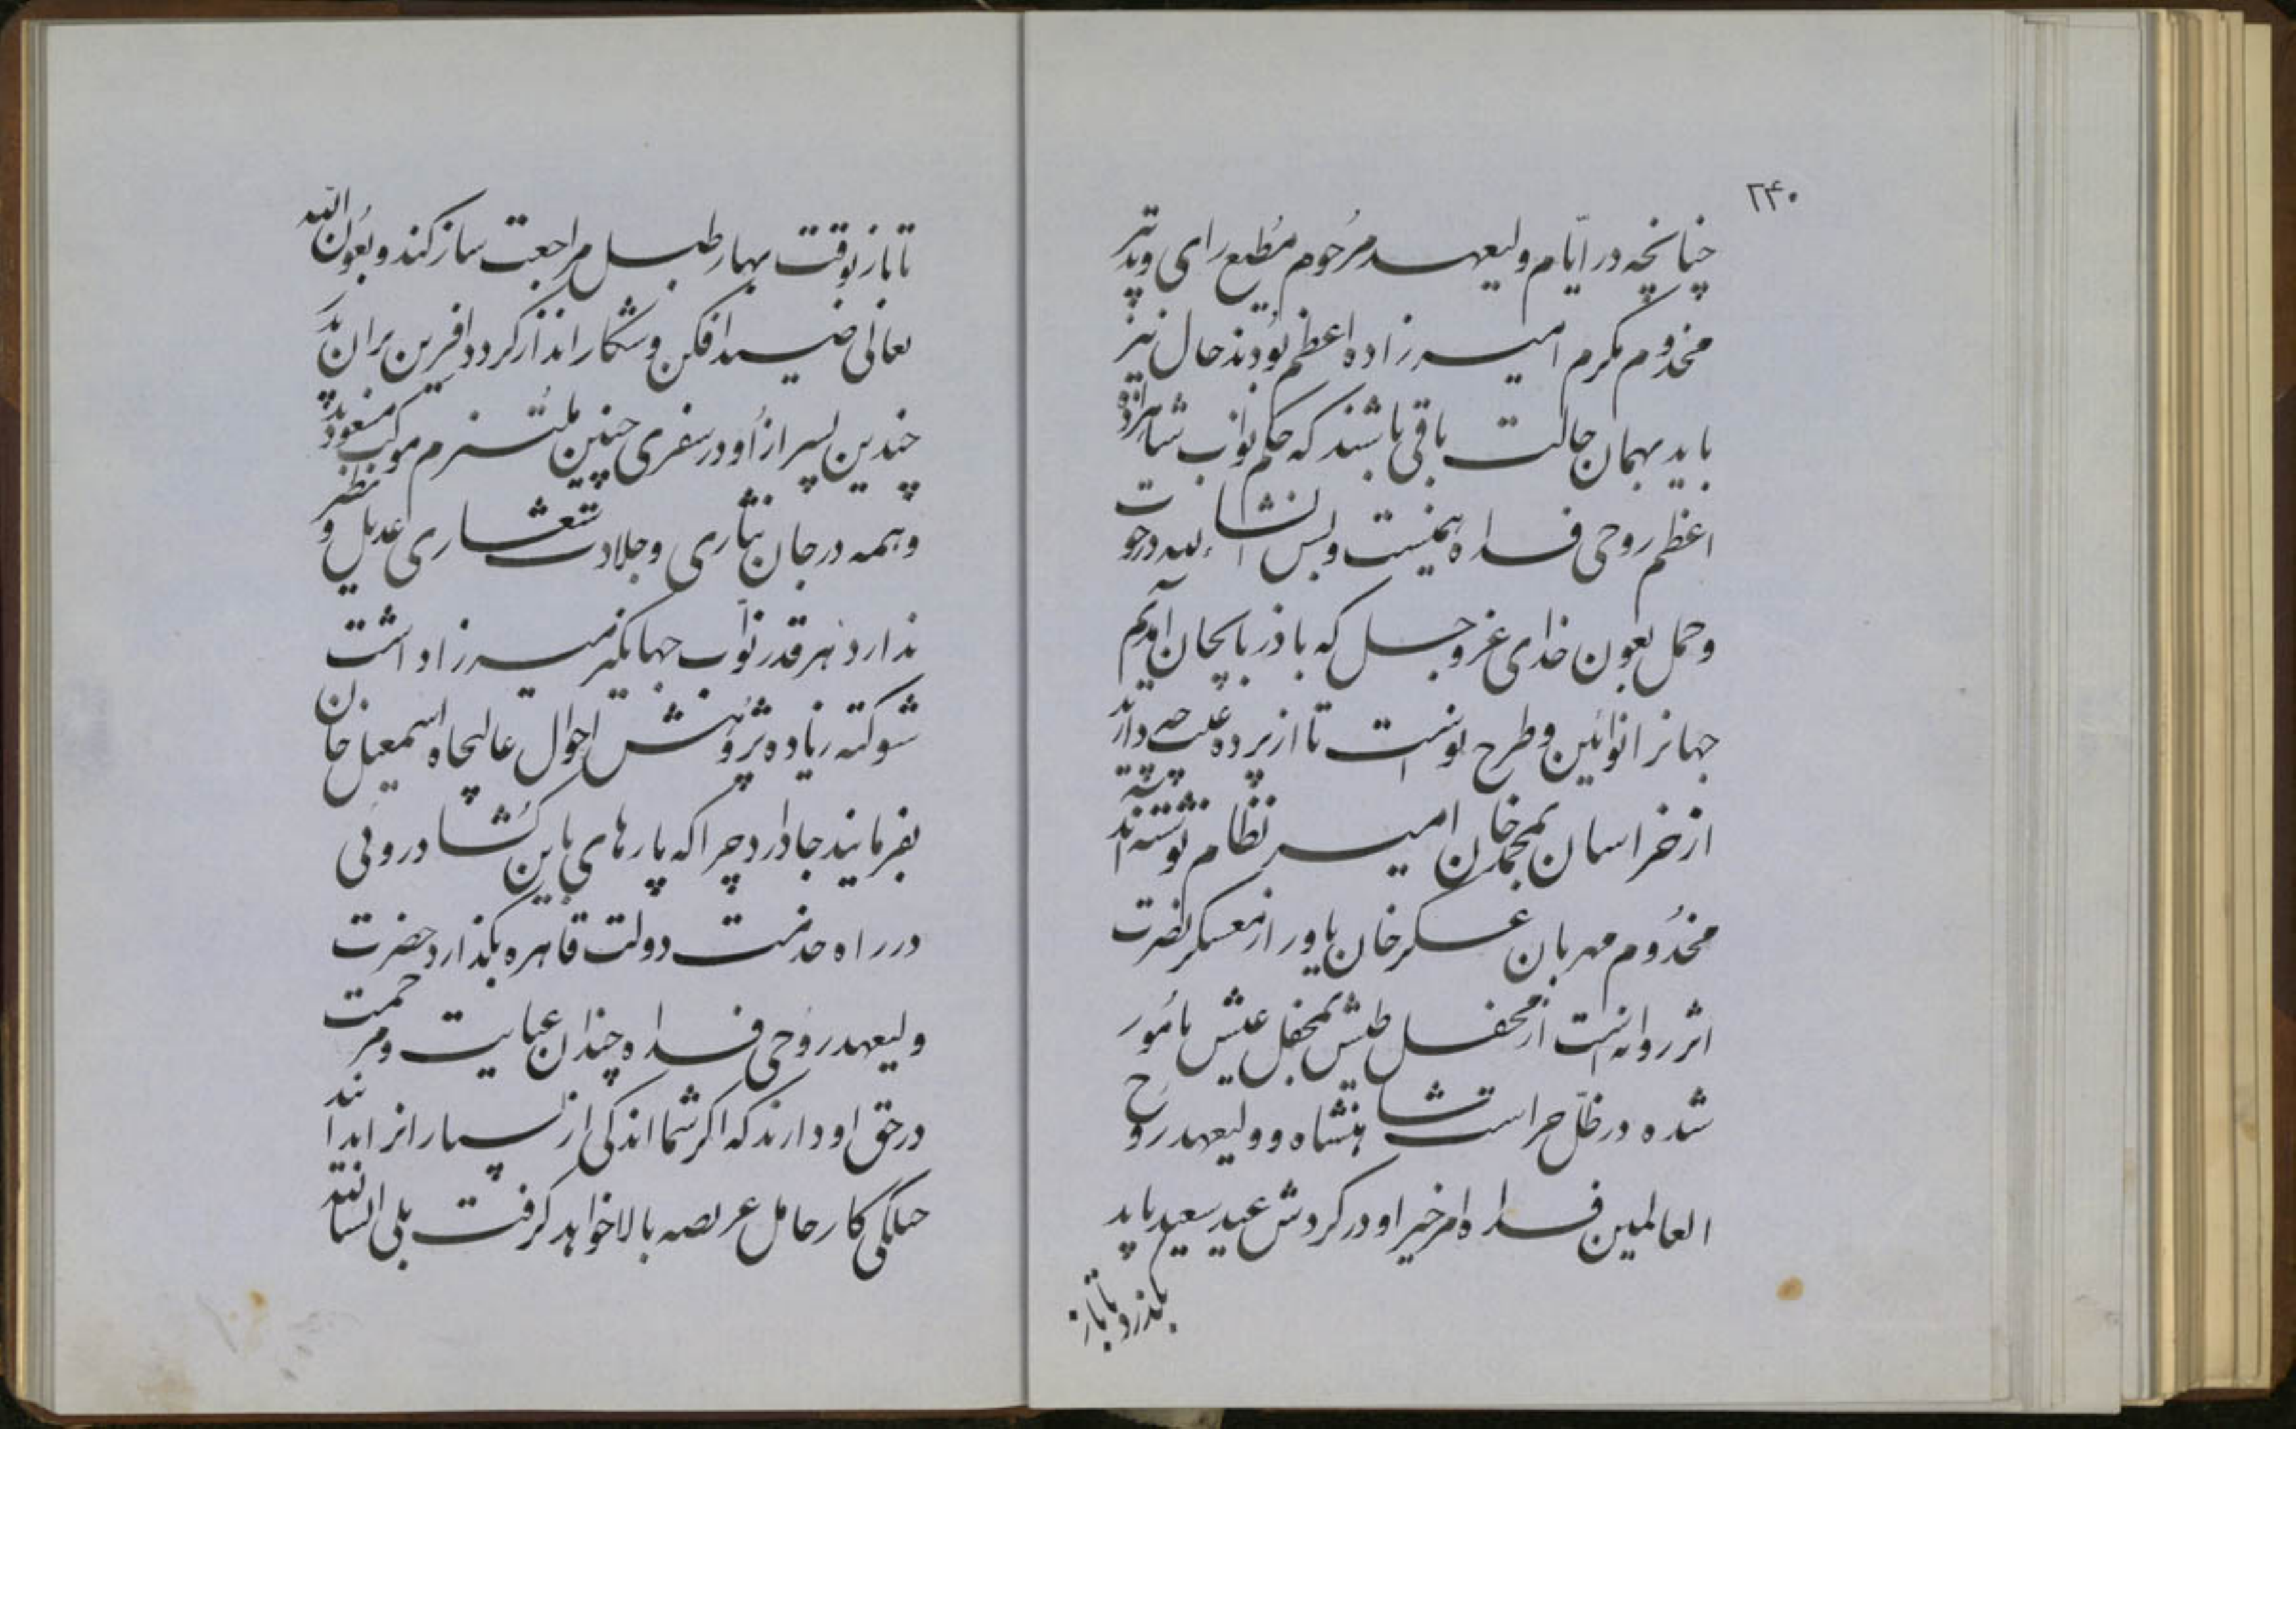 ۲۴۰
چنانچه در ایّام ولیعهد مرُحوم مُطیع رای و تدبیر
مخدوم مکرم امیرزاده اعظم بوُدند حال نیز
باید بهمان حالت باقی باشند که حکم نواب شاهزاده
اعظم روحی فداه همینست و بس انشاء الله در حوت
و حمل بعون خدای عز و جل که باذربایجان آمدیم
جهانرا نوائین و طرح نوست تا از پرده غیب چه در آید
از خراسان بمحمد خان امیر نظام نوشته اند
مخدُوم مهربان عسکر خان یاور از معسکر نصرت
اثر روانه است از محفل طیش بمحفل عیش مامُور
شده در ظلّ حراست شاهنشاه و ولیعهد روح
العالمین فداه امر خیر او در کردش عید سعید باید
بکذرد تا باز
تا باز بوقت بهار طبل مراجعت ساز کند و بعُون الله
تعالی صید افکن و شکار انداز کردد افرین بران پدر
چندین پسر از اُو در سفری چنین ملُتزم موکب مسعود
و همه در جان نثاری و جلادت شعاری عدیل و نظیر
ندارد هر قدر نوّاب جهانکیر میرزا داشت
شوکته زیاده پژوُهش احوال عالیجاه اسمعیل خان
بفرمایند جا دارد چرا که پارهای باین کُشاد روئی
در راه خدمت دولت قاهره بکذارد حضرت
ولیعهد روُحی فداه چندان عنایت و مرحمت
در حق او دارند که اکر شما اندکی از بسیار انرا بدانند
کار حامل عریضه بالا خواهد کرفت بلی